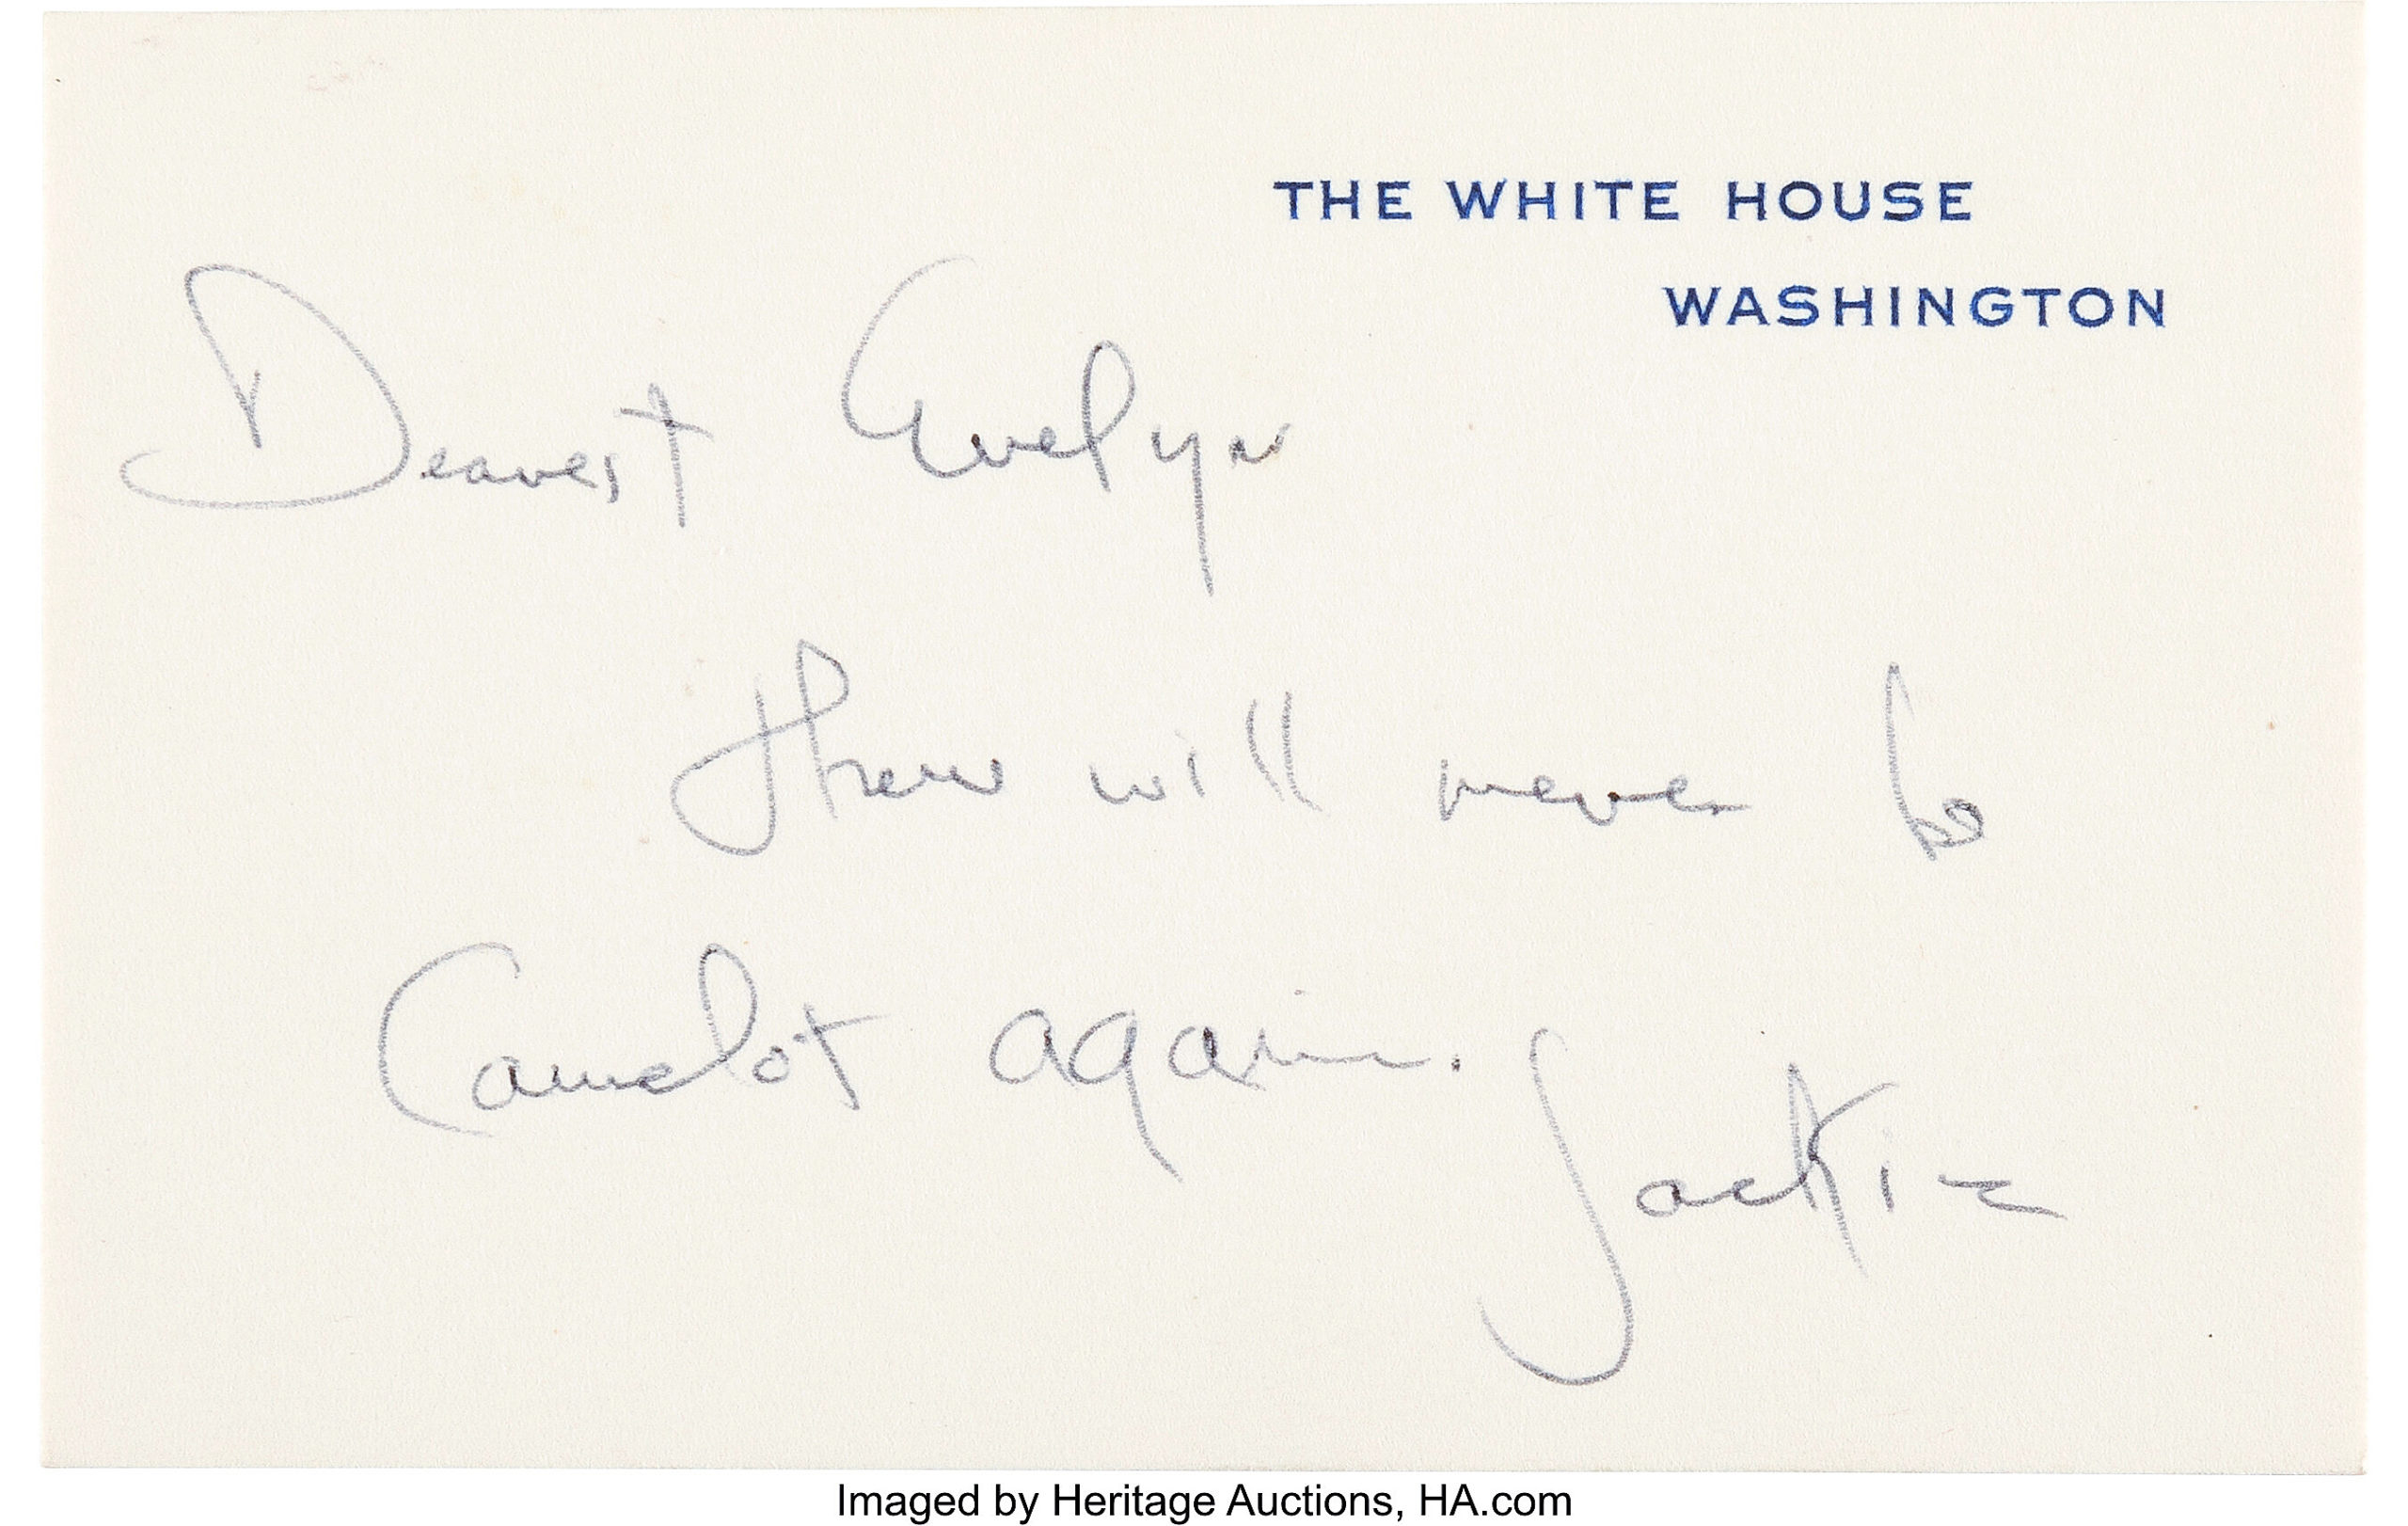 THE WHITE HOUSE
WASHINGTON
Dearest Evelyn
there will never be
Camelot again.
Jackie
Imaged by Heritage Auctions, HA.com